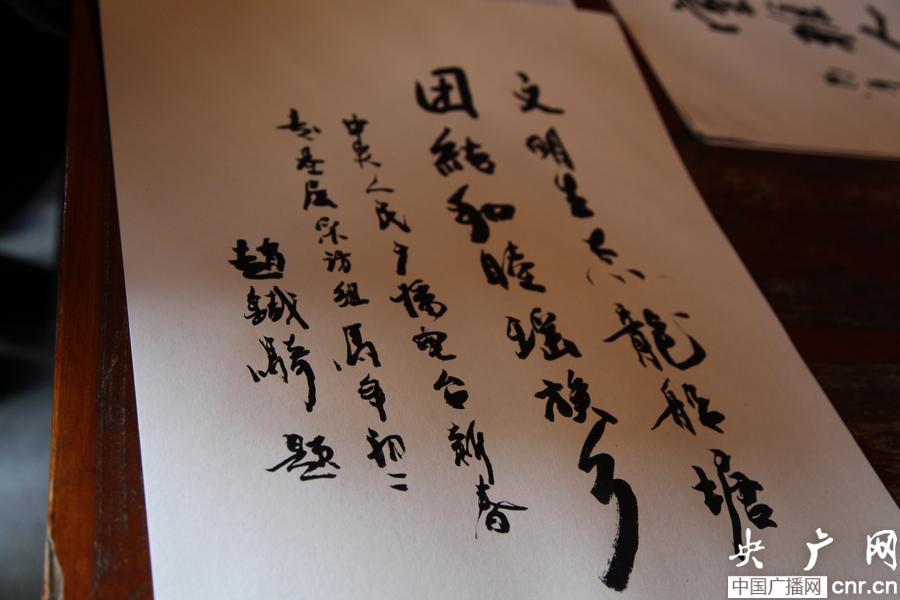 文明生态龍船塘
团結和睦瑶族乡
中央人民广播電台新春
走基层采访组馬年初二
趙鐵騎 題
央广网
中国广播网 cnr.cn